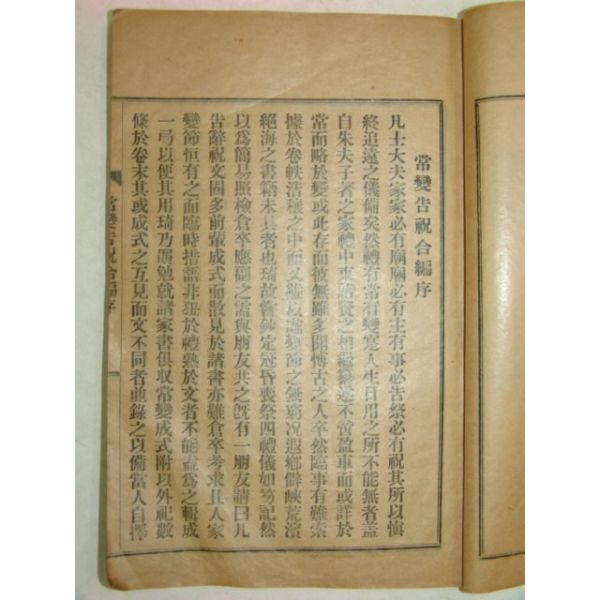 常變告祝合編序
凡士大夫家家必有廟廟必有主有事必告祭必有祝其所以愼
終追遠之儀備矣然禮有常有變寔人生日用之所不能無者盖
自朱夫子著之家禮中東諸賢之相繼纂述不啻盈車而或詳於
常而略於變或此存而彼無雖多聞愽古之人卒然臨事有難索
據於卷帙浩穰之中而又難以處變節之無窮况遐鄕僻峽荒濱
絕海之書籍未具者也琦故嘗鈔定冠昏喪祭四禮儀如笏記然
以爲簡易照檢倉卒應副之需與朋友共之旣有一朋友請曰凡
告辭祝文固多前輩成式而散見於諸書亦難倉卒考求且人家
變節恒有之而臨時措語非狃於禮熟於文者不能盍爲之輯成
一弓以便其用琦乃黽勉就諸家書俱収常變成式附以外祀數
條於卷末其或成式之互見而文不同者並錄之以備當人自擇
常變告祝合編 序